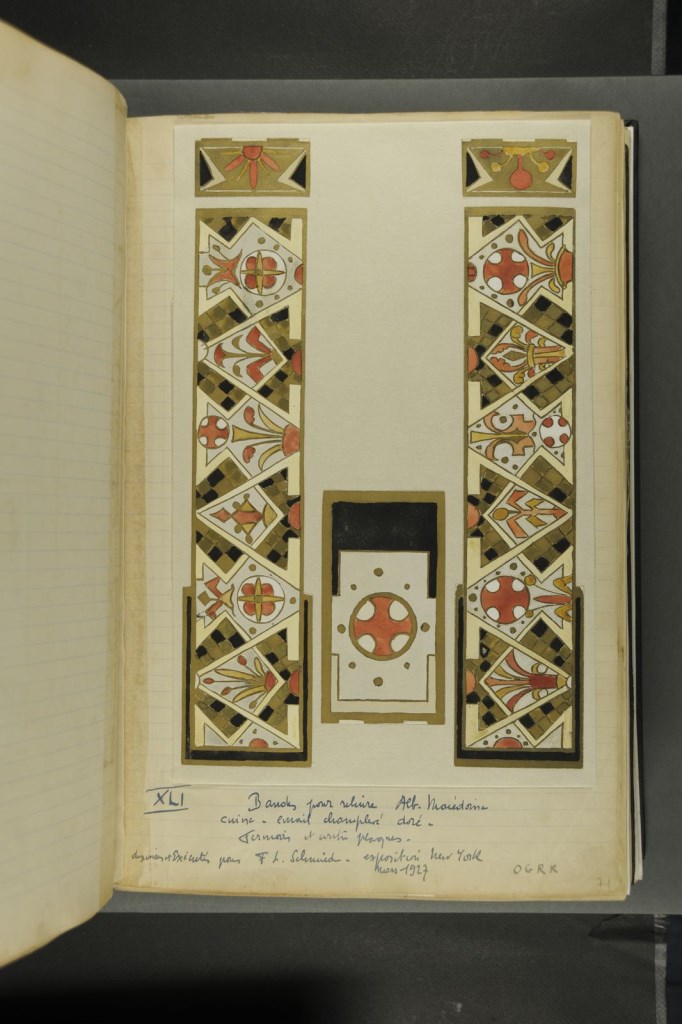 XLI
Bandes pour reliure Alb. Macédoine
cuivre - émail champlevé doré -
Fermoirs et petites plaques -
dessinées et Exécutés pour F. L. Schmied - exposition New York
mars 1927
OGRK
71